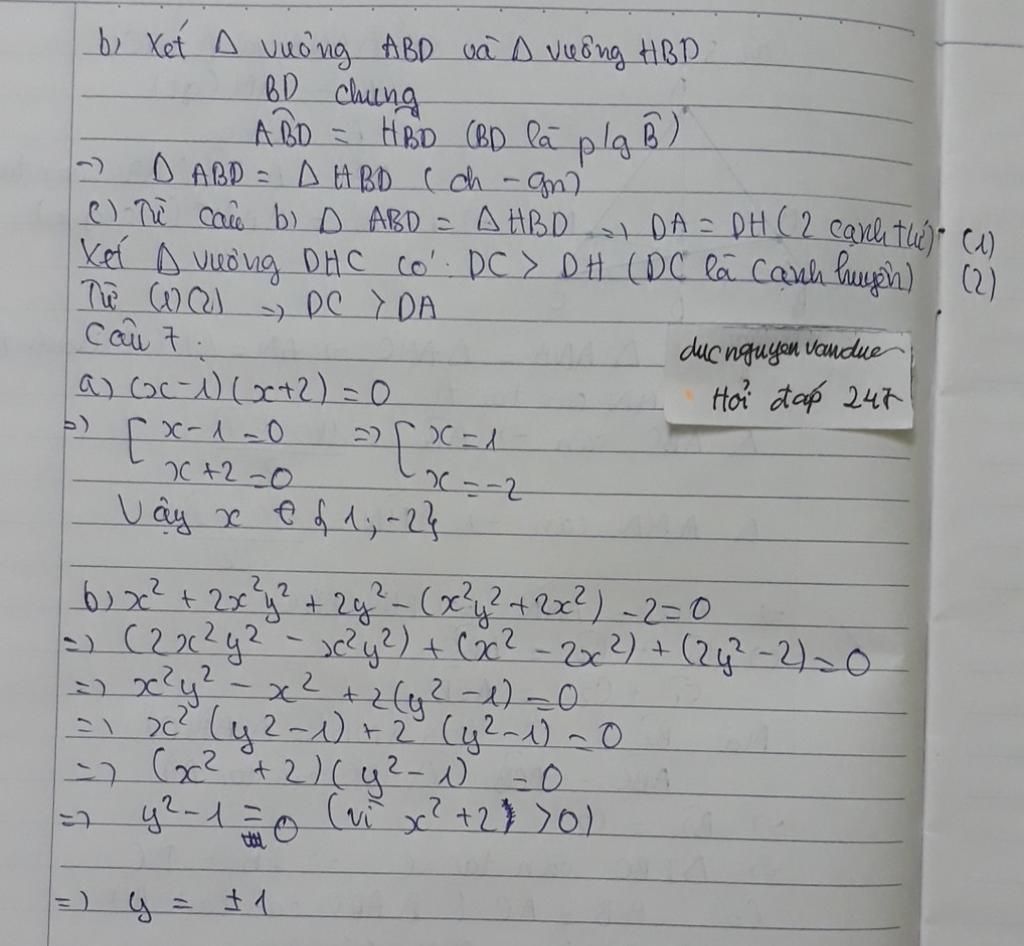 b) Xét Δ vuông ABD và Δ vuông HBD
BD chung
ABD = HBD (BD là p/g B)
=> Δ ABD = Δ HBD (ch - gn)
c) Từ câu b) Δ ABD = Δ HBD => DA = DH (2 cạnh tư) (1)
Xét Δ vuông DHC có: DC > DH (DC là cạnh huyền) (2)
Từ (1)(2) => DC > DA
Câu 7:
ducnguyenvanduc
Hỏi đáp 247
a) (x-1)(x+2) = 0
=> [ x-1=0 => [ x=1
x+2=0 x=-2
Vậy x ∈ {1; -2}
b) x² + 2x²y² + 2y² - (x²y² + 2x²) - 2 = 0
=> (2x²y² - x²y²) + (x² - 2x²) + (2y² - 2) = 0
=> x²y² - x² + 2(y² - 1) = 0
=> x² (y² - 1) + 2 (y² - 1) = 0
=> (x² + 2)(y² - 1) = 0
=> y² - 1 = 0 (vì x² + 2 > 0)
=> y = ± 1